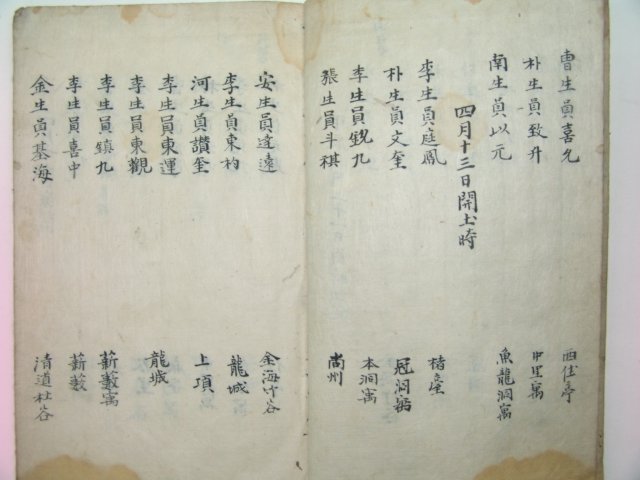 曺生員喜允 西仕亭
朴生員致升 中里寓
南生員以元 魚龍洞寓
四月十三日開土時
李生員庭鳳
朴生員文奎 冠洞寓
李生員銳九 本洞寓
張生員斗祺 尙州
安生員達遠 金海竹谷
李生員東杓 龍城
河生員讚奎 上項
李生員東運 龍城
李生員東觀
李生員鎭九 薪藪寓
李生員喜中 薪藪
金生員基海 清道杜谷